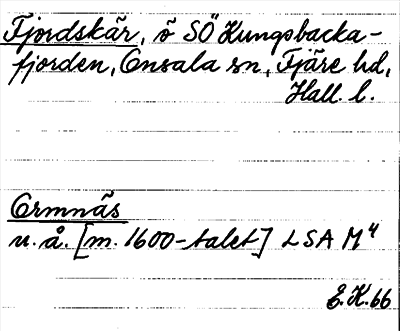 Fjordskär, ö SÖ Kungsbacka-
fjorden, Onsala sn, Fjäre hd,
Hall. l.
Ormnäs
u. å. [m. 1600-talet] LSA M⁴
E.K. 66